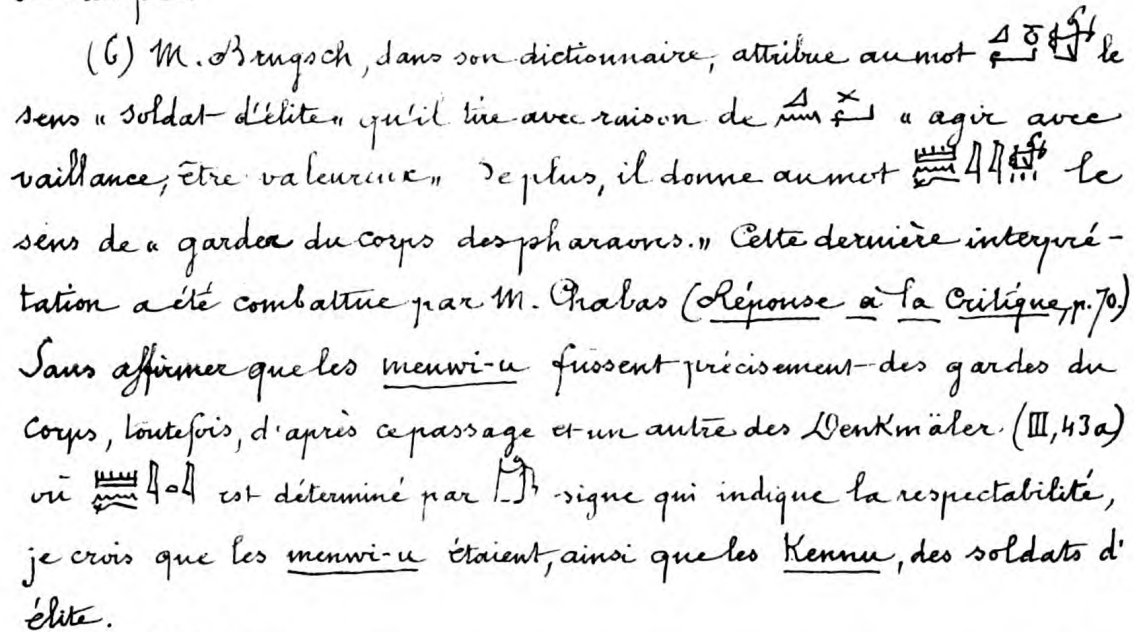 (6) M. Brugsch, dans son dictionnaire, attribue au mot le
sens « soldat d'élite » qu'il tire avec raison de « agir avec
vaillance, être valeureux » De plus, il donne au mot le
sens de « gardes du corps des pharaons. » Cette dernière interpré-
tation a été combattue par M. Chabas (Réponse à la Critique, p. 70.)
Sans affirmer que les menwi-u fussent précisement des gardes du
corps, toutefois, d'après ce passage et un autre des Denkmäler (III, 43a)
où est déterminé par signe qui indique la respectabilité,
je crois que les menwi-u étaient, ainsi que les Kennu, des soldats d'
élite.